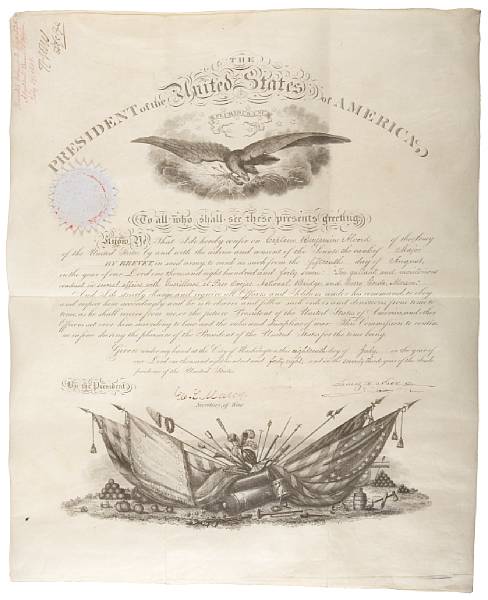 THE
PRESIDENT of the United States of AMERICA,
To all who shall see these presents greeting:
Know Ye That I do hereby confer on Captain Benjamin Alvord of the army
of the United States by and with the advice and consent of the Senate the rank of Major
BY BREVET in said army, to rank as such from the fifteenth day of August,
in the year of our Lord one thousand eight hundred and forty seven: For gallant and meritorious
conduct in several affairs with Guerillas, at Paso Ovejas, National Bridge, and Cerro Gordo, Mexico.
And I do strictly charge and require all Officers and Soldiers under his command to obey
and respect him accordingly and he is to observe and follow such orders and directions from time to
time, as he shall receive from me or the future President of the United States of America, and other
Officers set over him according to law and the rules and discipline of war. This Commission to continue
in force during the pleasure of the President of the United States for the time being.
Given under my hand at the City of Washington this eighteenth day of July, in the year of
our Lord one thousand eight hundred and forty eight, and in the seventy third year of the Inde
pendence of the United States.
By the President
W. L. Marcy
Secretary of War
James K. Polk